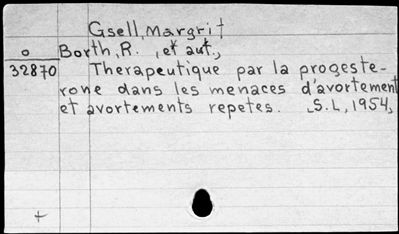 Gsell, Margrit
o Borth, R. , et aut.,
32870 Therapeutique par la progeste-
rone dans les menaces d'avortement
et avortements repetes. S.L, 1954,
+